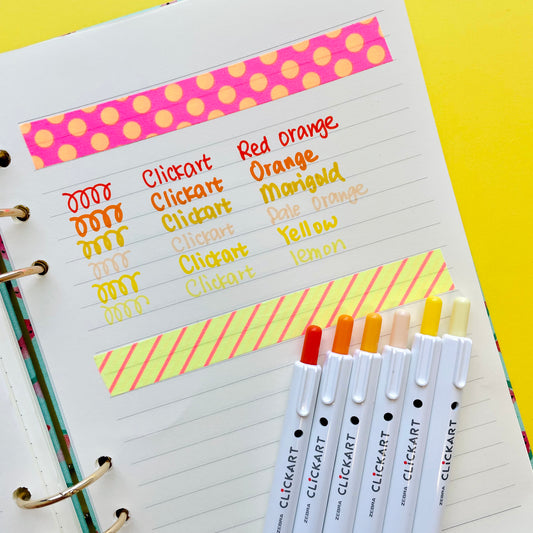 Clickart Red orange
Clickart Orange
Clickart Marigold
Clickart Pale Orange
Clickart Yellow
Clickart lemon
ZEBRA CLiCKART
ZEBRA CLiCKART
ZEBRA CLiCKART
ZEBRA CLiCKART
ZEBRA CLiCKART
ZEBRA CLiCKART